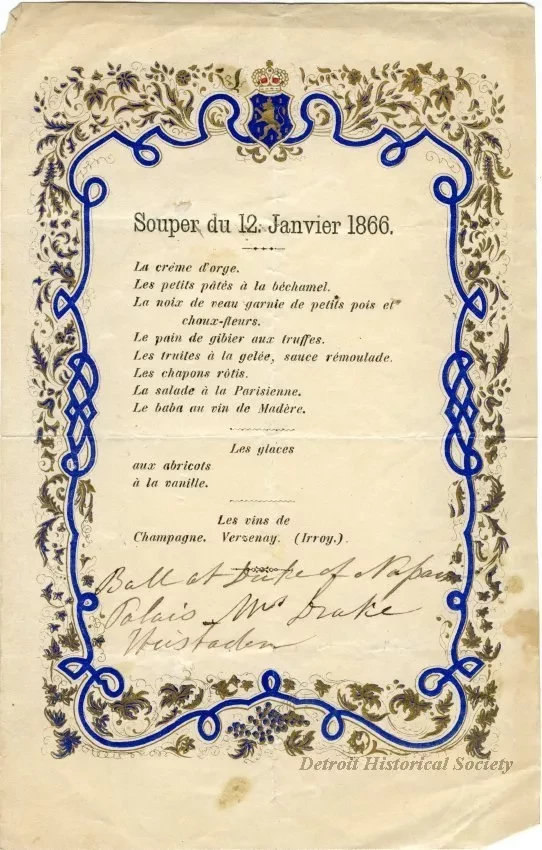 Souper du 12. Janvier 1866.
La crême d'orge.
Les petits pâtés à la béchamel.
La noix de veau garnie de petits pois et
choux-fleurs.
Le pain de gibier aux truffes.
Les truites à la gelée, sauce rémoulade.
Les chapons rôtis.
La salade à la Parisienne.
Le baba au vin de Madère.
Les glaces
aux abricots
à la vanille.
Les vins de
Champagne. Verzenay. (Irroy.)
Ball at Duke of Nassau
Palais Mrs Drake
Detroit Historical Society